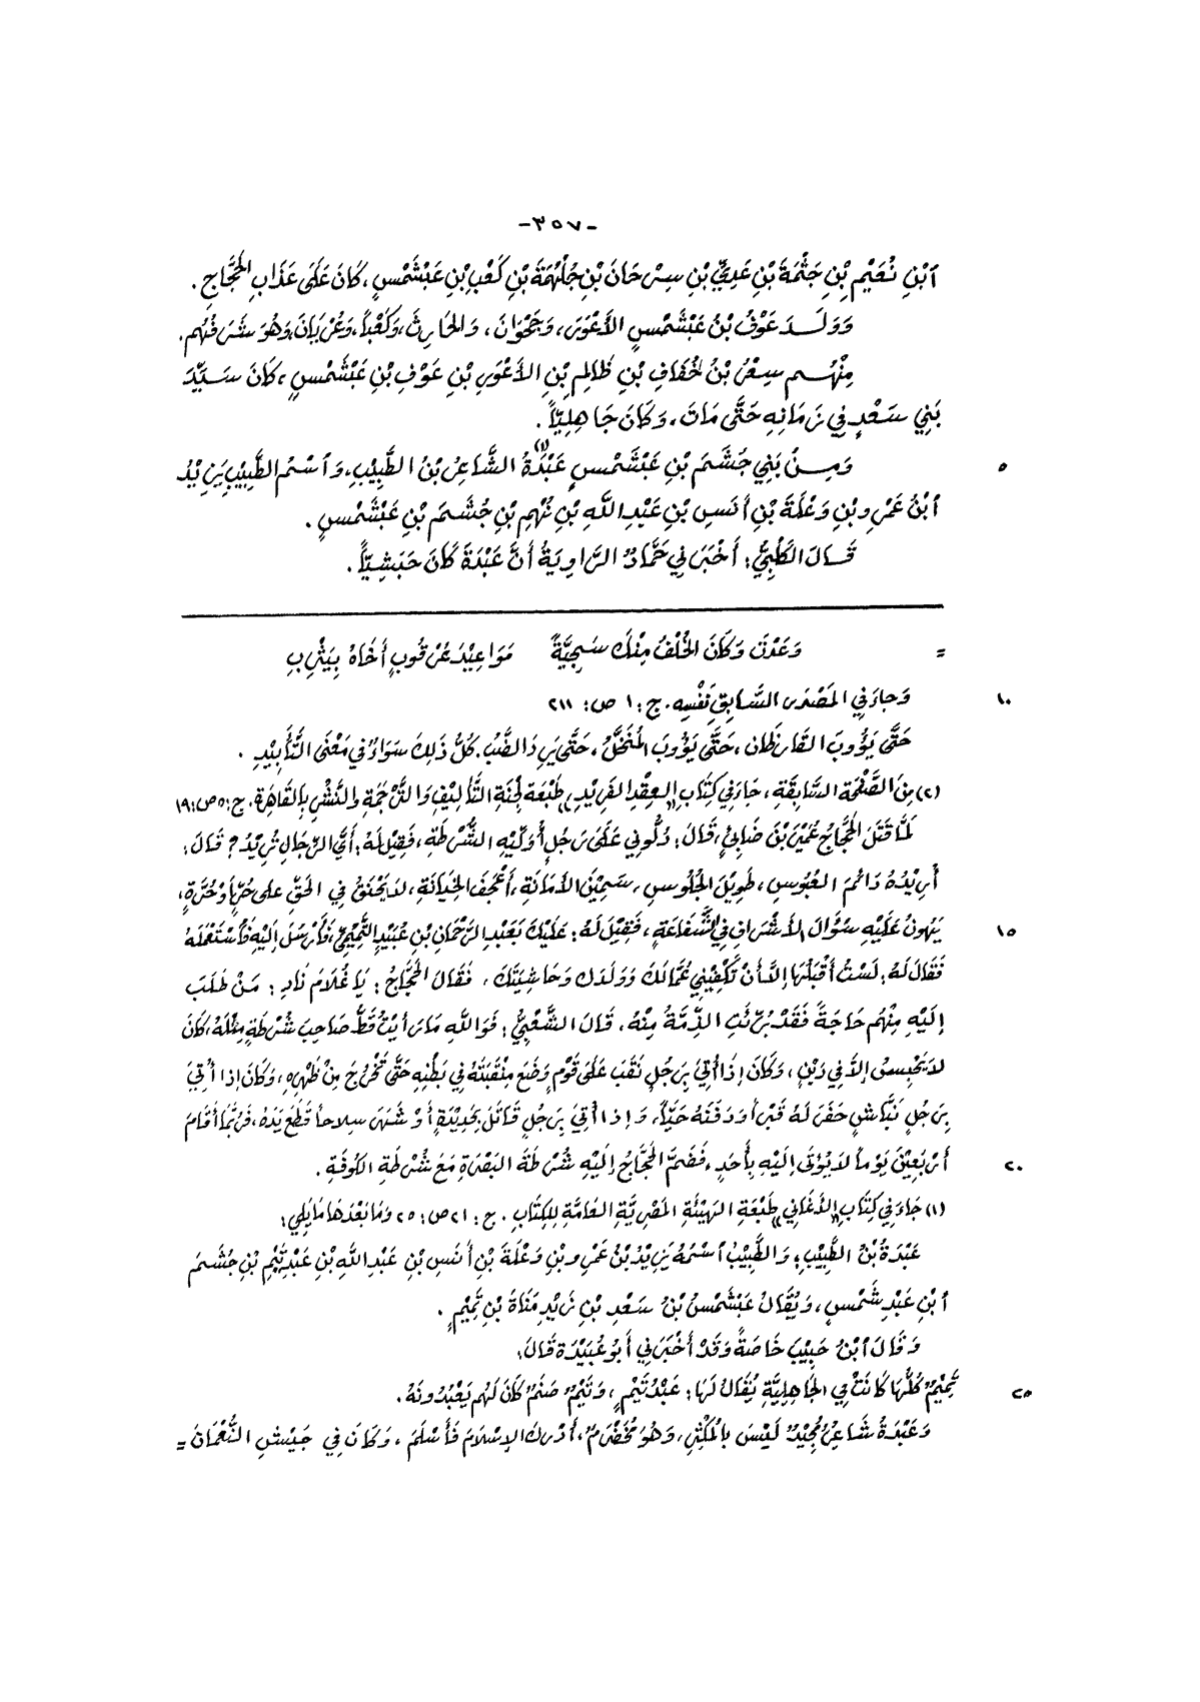 -٣٥٧-
ٱبْنِ نُعَيْمِ بْنِ جَثْمَةَ بْنِ عَدِيِّ بْنِ سِرْحَانَ بْنِ جُلْهُمَةَ بْنِ كَعْبِ بْنِ عَبْشَمْسٍ، كَانَ عَلَى عَذَابِ الحَجَّاجِ.
وَوَلَدَ عَوْفُ بْنُ عَبْشَمْسٍ الأَعْوَرَ، وَجَحْوَانَ، وَالحَارِثَ، وَكَعْبًا، وَعُرْيَانَ، وَهُوَ شَرَفُهُم.
مِنْهُم سِعْرُ بْنُ خُفَافِ بْنِ ظَالِمِ بْنِ الأَعْوَرِ بْنِ عَوْفِ بْنِ عَبْشَمْسٍ، كَانَ سَيِّدَ
بَنِي سَعْدٍ فِي زَمَانِهِ حَتَّى مَاتَ، وَكَانَ جَاهِلِيّاً.
٥ وَمِنْ بَنِي جُشَمَ بْنِ عَبْشَمْسٍ عَبْدَةُ(١) الشَّاعِرُ بْنُ الطَّبِيْبِ، وَٱسْمُ الطَّبِيْبِ يَزِيْدُ
ٱبْنُ عَمْرِو بْنِ وَعْلَةَ بْنِ أَنَسِ بْنِ عَبْدِ اللَّهِ بْنِ نُهْمِ بْنِ جُشَمَ بْنِ عَبْشَمْسٍ.
قَالَ الكَلْبِيُّ: أَخْبَرَنِي حَمَّادٌ الرَّاوِيَةُ أَنَّ عَبْدَةَ كَانَ حَبَشِيّاً.
= وَعَدْتَ وَكَانَ الخُلْفُ مِنْكَ سَجِيَّةً مَوَاعِيْدَ عُرْقُوبٍ أَخَاهُ بِيَثْرِبِ
١٠ وَجاءَ فِي المَصْدَرِ السَّابِقِ نَفْسِهِ. ج: ١ ص: ٢١١
حَتَّى يَؤُوبَ القَارِظَان، حَتَّى يَؤُوبَ المُنَخَّلُ، حَتَّى يَرِدَ الضَّبُّ. كُلُّ ذَلِكَ سَوَاءٌ فِي مَعْنَى التَّأْبِيْدِ.
(٢) مِنَ الصَّفْحَةِ السَّابِقَةِ، جَاءَ فِي كِتَابِ «العِقْدِ الفَرِيْدِ» طَبْعَة لَجْنَةِ التَّأْلِيْفِ وَالتَّرْجَمَةِ وَالنَّشْرِ بِالقَاهِرَةِ. ج: ٥ ص: ١٩
لَمَّا قَتَلَ الحَجَّاجُ عُمَيْرَ بْنَ ضَابِئٍ، قَالَ: دُلُّونِي عَلَى رَجُلٍ أُوَلِّيْهِ الشُّرْطَةَ، فَقِيْلَ لَهُ: أَيَّ الرِّجَالِ تُرِيْدُ؟ قَالَ:
أُرِيْدُهُ دَائِمَ العُبُوسِ، طَوِيْلَ الجُلُوسِ، سَمِيْنَ الأَمَانَةِ، أَعْجَفَ الخِيَانَةِ، لاَ يَحْنَقُ فِي الحَقِّ عَلى حُرٍّ أَوْ حُرَّةٍ،
١٥ يَهُونُ عَلَيْهِ سُؤَالُ الأَشْرَافِ فِي الشَّفَاعَةِ، فَقِيْلَ لَهُ: عَلَيْكَ بِعَبْدِ الرَّحْمَانِ بْنِ عُبَيْدٍ التَّمِيْمِيِّ، فَأَرْسَلَ إِلَيْهِ فَٱسْتَعْمَلَهُ
فَقَالَ لَهُ: لَسْتُ أَقْبَلُهَا إِلاَّ أَنْ تَكْفِيْنِي عُمَّالَكَ وَوَلَدَكَ وَحَاشِيَتَكَ، فَقَالَ الحَجَّاجُ: يَا غُلاَمُ نَادِ: مَنْ طَلَبَ
إِلَيْهِ مِنْهُم حَاجَةً فَقَدْ بَرِئَتِ الذِّمَّةُ مِنْهُ، قَالَ الشَّعْبِيُّ: فَوَاللَّهِ مَا رَأَيْتُ قَطُّ صَاحِبَ شُرْطَةٍ مِثْلَهُ، كَانَ
لاَ يَحْبِسُ إِلاَّ فِي دَيْنٍ، وَكَانَ إِذَا أُتِيَ بِرَجُلٍ نَقَبَ عَلَى قَوْمٍ وَضَعَ مِنْقَبَتَهُ فِي بَطْنِهِ حَتَّى تَخْرُجَ مِنْ ظَهْرِهِ، وَكَانَ إِذا أُتِيَ
بِرَجُلٍ نَبَّاشٍ حَفَرَ لَهُ قَبْراً وَدَفَنَهُ حَيّاً، وَإِذا أُتِيَ بِرَجُلٍ قَاتَلَ بِحَدِيْدَةٍ أَوْ شَهَرَ سِلاحاً قَطَعَ يَدَهُ، فَرُبَّمَا أَقَامَ
٢٠ أَرْبَعِيْنَ يَوْماً لاَ يُؤْتَى إِلَيْهِ بِأَحَدٍ، فَضَمَّ الحَجَّاجُ إِلَيْهِ شُرْطَةَ البَصْرَةِ مَعَ شُرْطَةِ الكُوفَةِ.
(١) جَاءَ فِي كِتَابِ «الأَغَانِي» طَبْعَةِ الهَيْئَةِ المَصْرِيَّةِ العَامَّةِ لِلكِتَابِ. ج: ٢١ ص: ٢٥ وَمَا بَعْدَهَا مَا يَلِي:
عَبْدَةُ بْنُ الطَّبِيْبِ، وَالطَّبِيْبُ ٱسْمُهُ يَزِيْدُ بْنُ عَمْرِو بْنِ وَعْلَةَ بْنِ أَنَسِ بْنِ عَبْدِ اللَّهِ بْنِ عَبْدِ تَيْمِ بْنِ جُشَمَ
ٱبْنِ عَبْدِ شَمْسٍ، وَيُقَالُ عَبْشَمْسُ بْنُ سَعْدِ بْنِ زَيْدِ مَنَاةَ بْنِ تَمِيْمٍ.
وَقَالَ ٱبْنُ حَبِيْبَ خَاصَةً وَقَدْ أَخْبَرَنِي أَبُو عُبَيْدَةَ قَالَ:
٢٥ تَمِيْمٌ كُلُّهَا كَانَتْ فِي الجَاهِلِيَّةِ يُقَالُ لَهَا: عَبْدُ تَيْمٍ، وَتَيْمٌ صَنَمٌ كَانَ لَهُم يَعْبُدُونَهُ.
وَعَبْدَةُ شَاعِرٌ مُجِيْدٌ لَيْسَ بِالمُكْثِرِ، وَهُوَ مُخَضْرَمٌ، أَدْرَكَ الإِسْلاَمَ فَأَسْلَمَ، وَكَانَ فِي جَيْشِ النُّعْمَانِ =